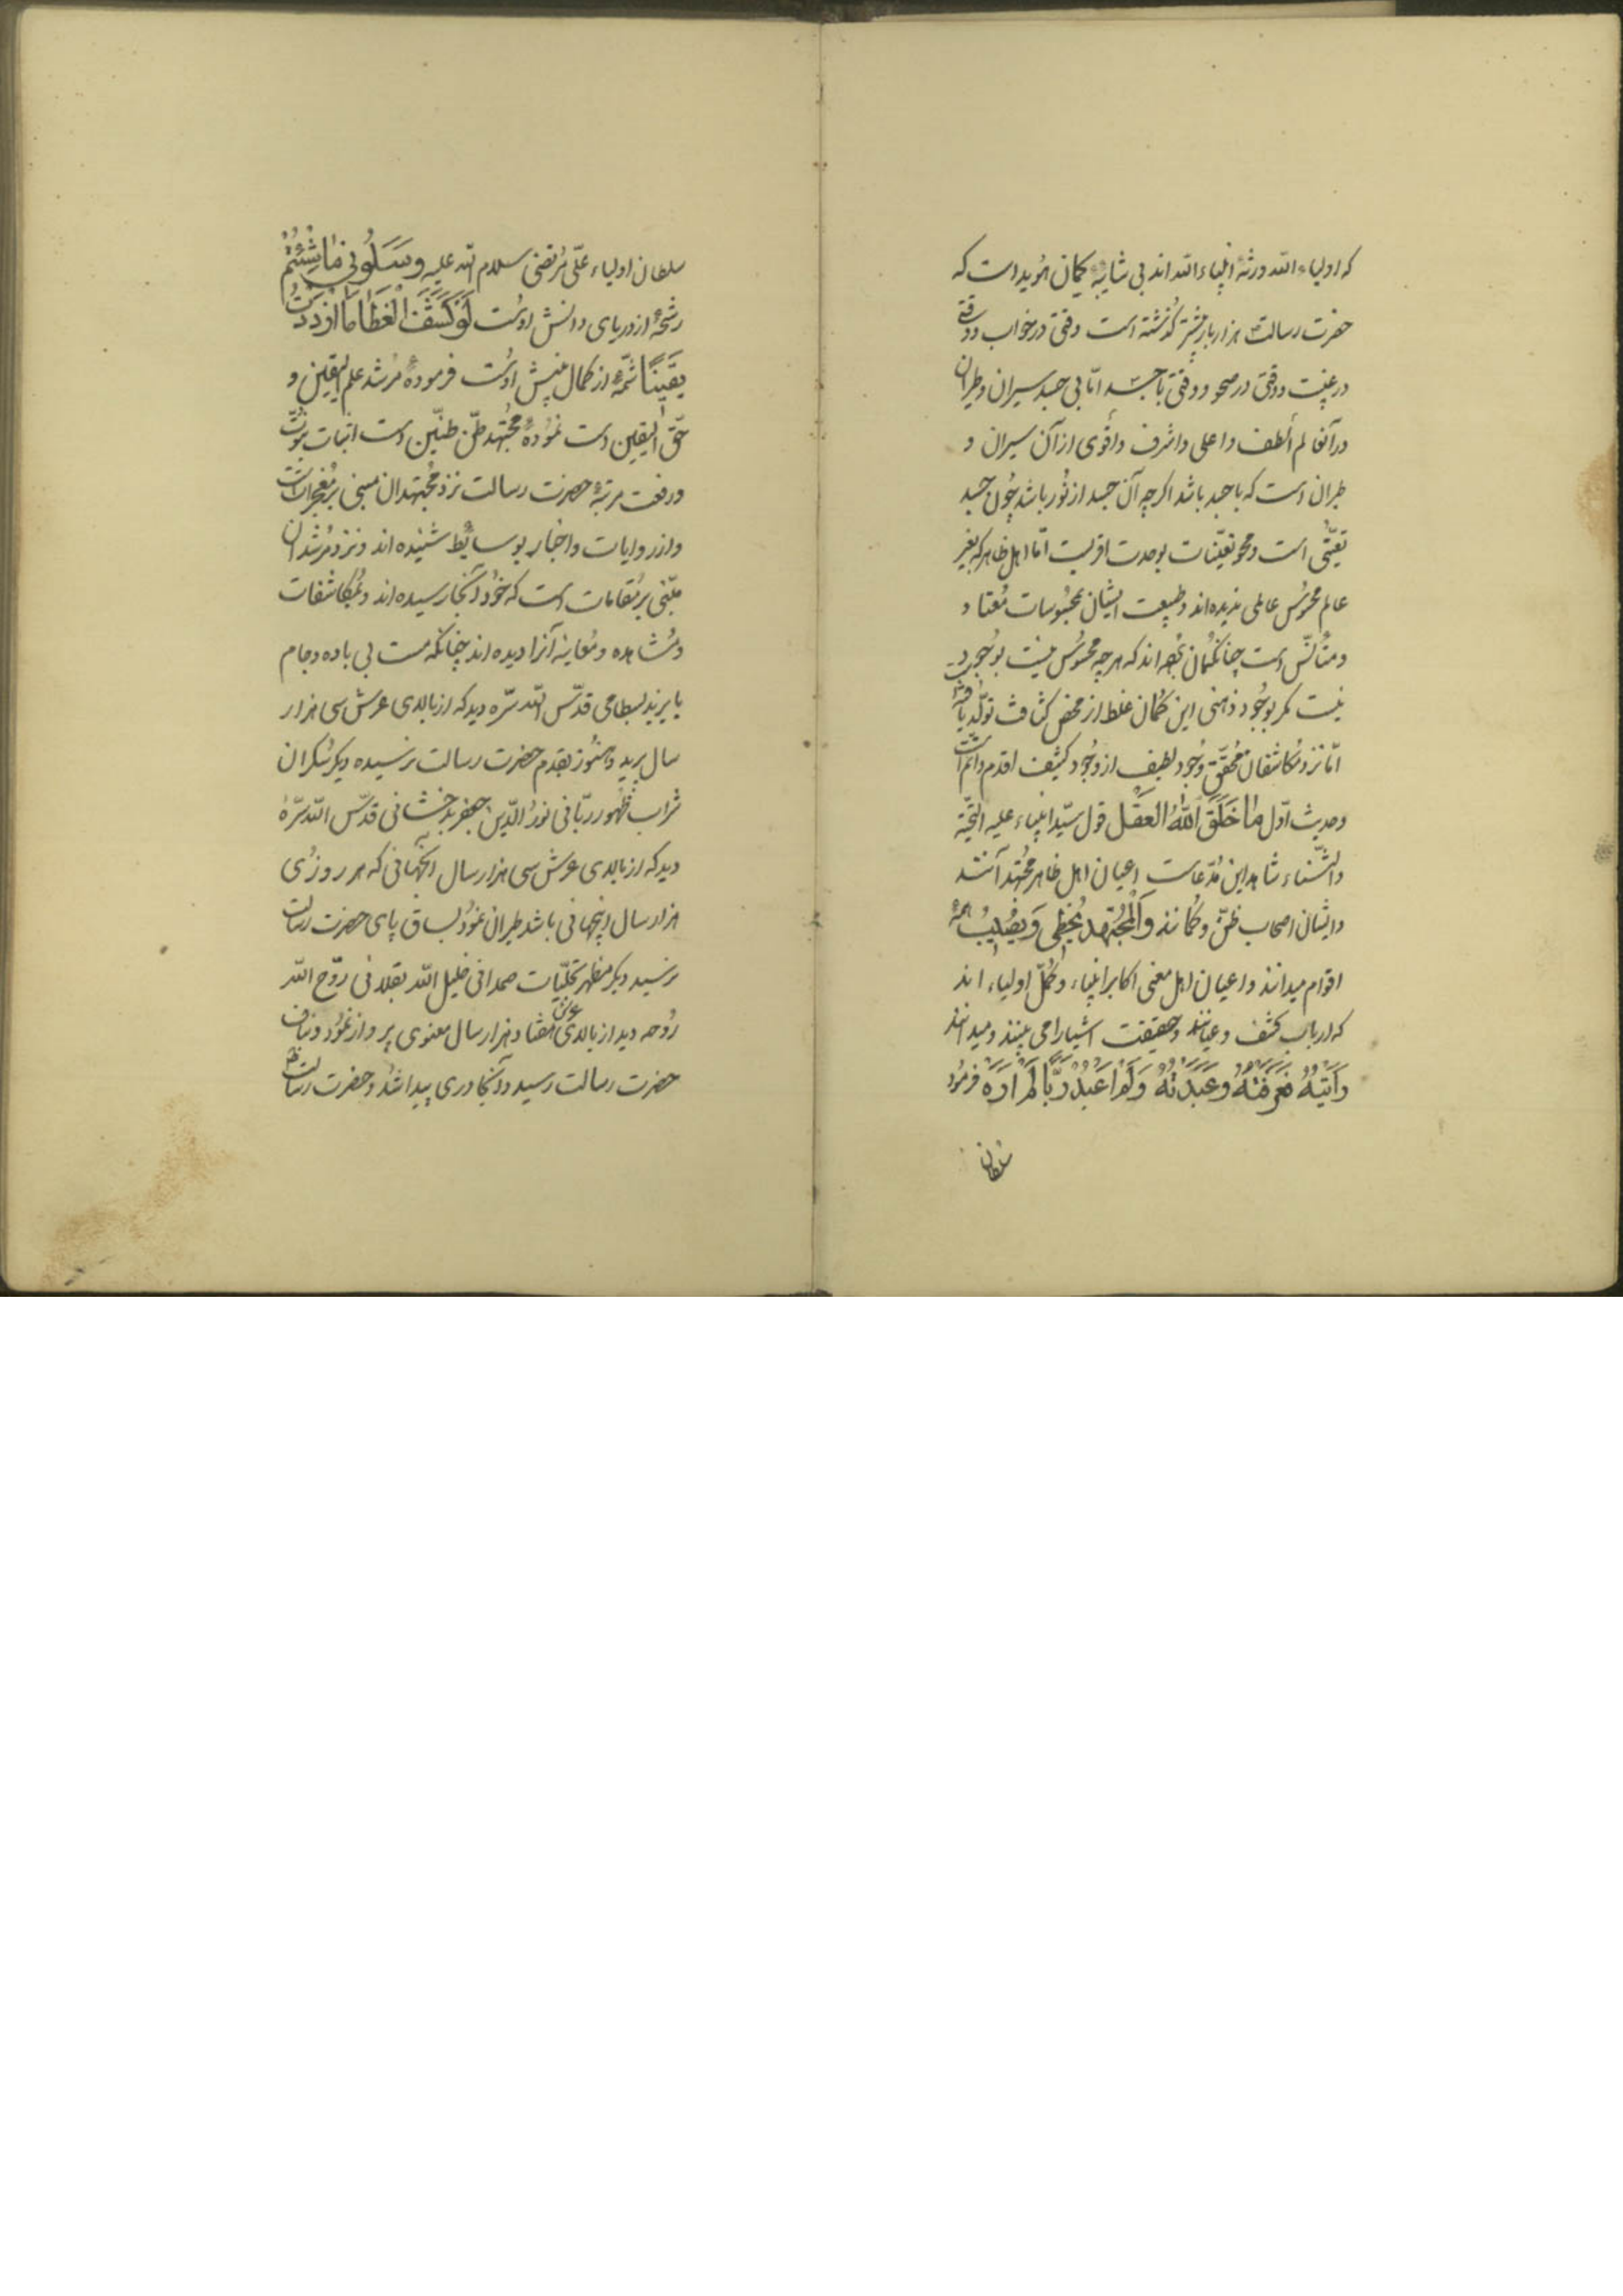 که اولیاء الله ورثهٔ انبیاء الله اند بی شایبهٔ گمان هویداست که
حضرت رسالت هزار بار بیشتر گذشته است وقتی در خواب و وقتی
در غیبت و وقتی در صحو و وقتی با جسد امّا بی جسد سیران و طیران
در آنعالم ألطف و اعلی و اشرف و أقوی از آن سیران و
طیران است که با جسد باشد اکرچه آن جسد از نُور باشد چُون جسد
تعیّنی است و محو تعیّنات بوحدت اقربست امّا اهل ظاهر که بغیر
عالم محسُوس عالمی ندیده اند و طبیعت ایشان بمحسُوسات مُعتاد
و متأنّس است چنان کُمان بُرده اند که هرچه محسُوس نیست بوجُود
نیست مکر بوجُود ذهنی این کُمان غلط از محض کثافت تولّد یافته
امّا نزد مُکاشفان مُحقّق وجُود لطیف از وجُود کثیف اقدم و اتمّ است
و حدیث اوّل مٰا خَلَقَ اللهُ العَقل قول سیّد انبیاء علیه التحیّة
والثّناء شاهد این مُدّعاست اعیان اهل ظاهر مُجتهد آنند
و ایشان اصحاب ظنّ و کُمانند وَالمُجتَهد یُخطِی وَ یُصیبُ
اقوام میدانند و اعیان اهل معنی اکابر انبیاء و کُمّل اولیاء اند
که ارباب کشف و عیانند و حقیقت اشیا را می بینند و میدانند
رَاَیتُهُ فَعَرَفتُهُ وعَبَدتُهُ وَلَم اَعبُد رَبًّا لَم اَرَهُ فرمُود
سلطان
سلطان اولیاء علیّ مُرتضی سلام الله علیه وسَلُونی مٰا شِئتُم
رشحهٔ از دریای دانش اوست لَو کَشَفَ الغطَا مَا ازدَدتُ
یَقینًا شمّهٔ از کمال بینش اوست فرمودهٔ مُرشد علم الیقین و
حقّ الیقین است نمُودهٔ مُجتهد ظنّ است اثبات نبُوّت
و رفعت مرتبهٔ حضرت رسالت نزد مُجتهدان مبنی بر مُعجزاتست
و از روایات و اخبار بوسایُط شنیده اند و نزد مُرشدان
مبتنی بر مُقامات است که خُود آنجا رسیده اند و بمُکاشفات
و مُشاهده و مُعاینه آنرا دیده اند چنانکه مست بی باده و جام
بایزید بسطامی قدّس الله سرّه دید که از بالای عرش سی هزار
سال پرید و هنُوز بقدم حضرت رسالت نرسیده دیکر سُکران
شراب ظهُور ربّانی نورُ الدّین جعفر بدخشانی قدّس الله سرّهُ
دید که از بالای عرش سی هزار سال آنجهانی که هر روزی
هزار سال اینجهانی باشد طیران نمُود بساق پای حضرت رسالت
نرسید دیکر مظهر تجلّیات صمدانی خلیل الله بقلانی روّح الله
رُوحه دید از بالای عرش هفتاد هزار سال معنوی پرواز نمُود و بناف
حضرت رسالت رسید و آنجا دری پیدا شُد و حضرت رسالت